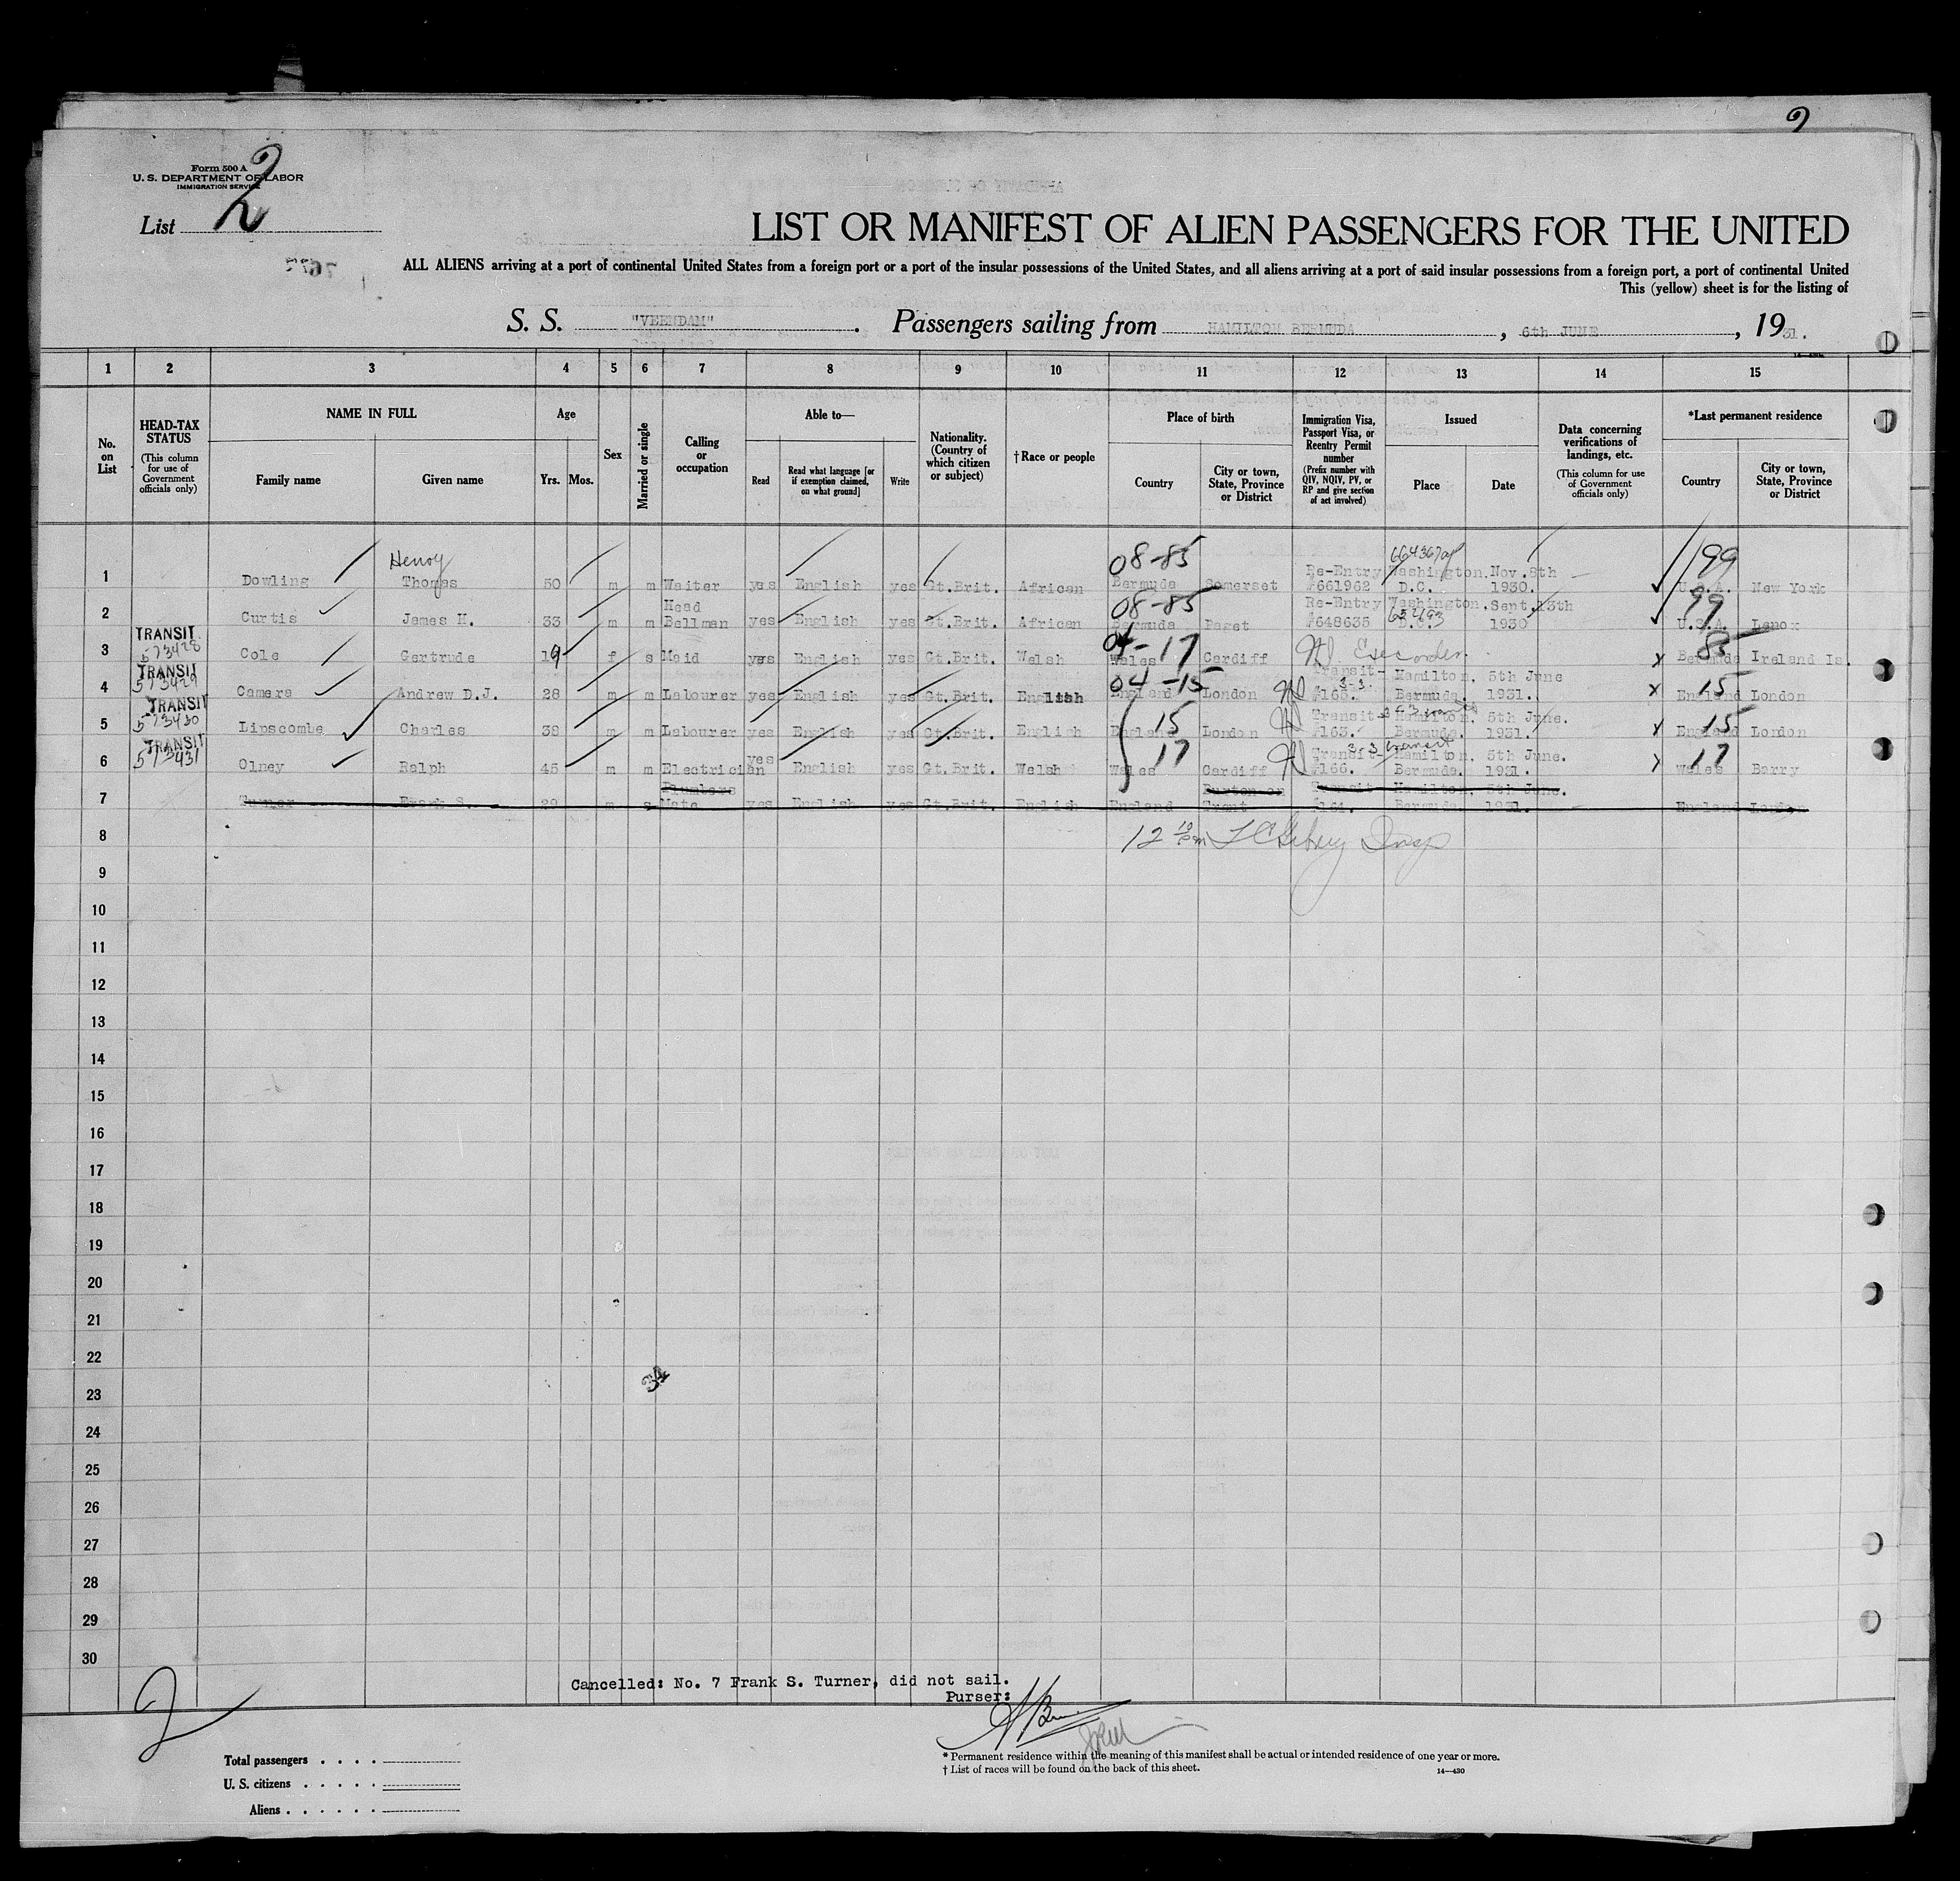 2
Form 500 A
U. S. DEPARTMENT OF LABOR
IMMIGRATION SERVICE
List 2
LIST OR MANIFEST OF ALIEN PASSENGERS FOR THE UNITED
ALL ALIENS arriving at a port of continental United States from a foreign port or a port of the insular possessions of the United States, and all aliens arriving at a port of said insular possessions from a foreign port, a port of continental United
This (yellow) sheet is for the listing of
S. S. "VEENDAM". Passengers sailing from HAMILTON BERMUDA, 6th JUNE, 1931.
1 2 3 4 5 6 7 8 9 10 11 12 13 14 15
No. on List
HEAD-TAX STATUS (This column for use of Government officials only)
NAME IN FULL
Family name Given name
Age
Yrs. Mos.
Sex
Married or single
Calling or occupation
Able to—
Read Read what language [or if exemption claimed, on what ground] Write
Nationality. (Country of which citizen or subject)
†Race or people
Place of birth
Country City or town, State, Province or District
Immigration Visa, Passport Visa, or Reentry Permit number (Prefix number with QIV, NQIV, PV, or RP and give section of act involved)
Issued
Place Date
Data concerning verifications of landings, etc. (This column for use of Government officials only)
*Last permanent residence
Country City or town, State, Province or District
Henry 08-85 99
1 Dowling Thomas 50 m m Waiter yes English yes Gt.Brit. African Bermuda Somerset Re-Entry #661962 Washington, D.C. Nov.8th 1930. U.S.A. New York
08-85 99
2 Curtis James H. 33 m m Head Bellman yes English yes Gt.Brit. African Bermuda Paget Re-Entry #648635 Washington, D.C. Sept.13th 1930 U.S.A. Lenox
TRANSIT 573428 04-17 85
3 Cole Gertrude 19 f s Maid yes English yes Gt.Brit. Welsh Wales Cardiff Bermuda Ireland Is.
TRANSIT 573429 04-15 3-3. 15
4 Camera Andrew D.J. 28 m m Labourer yes English yes Gt.Brit. English England London Transit- Hamilton, Bermuda. 5th June 1931. England London
TRANSIT 573430 15 15
5 Lipscombe Charles 38 m m Labourer yes English yes Gt.Brit. English England London Transit- #163. Hamilton, Bermuda. 5th June. 1931. England London
TRANSIT 573431 17 3-3 transit 17
6 Olney Ralph 45 m m Electrician yes English yes Gt.Brit. Welsh Wales Cardiff Transit- #166. Hamilton, Bermuda. 5th June. 1931. Wales Barry
7 Turner Frank S. m s Plumbers Mate yes English yes Gt.Brit. English England Burton on Trent Transit- #164. Hamilton, Bermuda. 5th June. 1931. England London
8
9
10
11
12
13
14
15
16
17
18
19
20
21
22
34
23
24
25
26
27
28
29
30
2
Cancelled: No. 7 Frank S. Turner, did not sail.
Purser:
Total passengers . . . .
U. S. citizens . . . . .
Aliens . . . . . .
* Permanent residence within the meaning of this manifest shall be actual or intended residence of one year or more.
† List of races will be found on the back of this sheet.
14—430